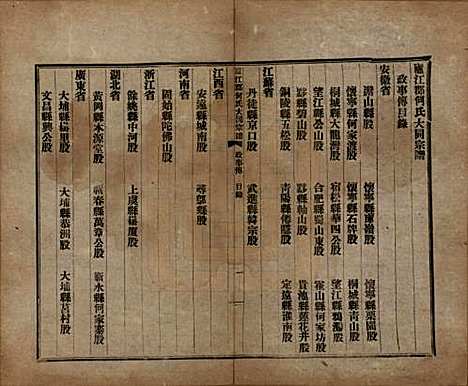 廬江郡何氏大同宗譜
政事傳目錄
安徽省
潛山股 懷寧縣董嶺股 懷寧縣栗園股
懷寧縣何家渡股 懷寧縣石牌股 桐城縣青山股
桐城縣大龍灣股 宿松縣華四公股 望江縣鴉灘股
望江縣公山股 合肥縣蜀山東股 霍山縣何家坊股
黟縣碧山股 黟縣柚山股 貴池縣蓮花井股
銅陵縣五松股 青陽縣傅隱股 定遠縣淮南股
江蘇省
丹徒縣京口股 武進縣韓宗股
廬江郡何氏大同宗譜 政事傳 目錄 一
江西省
安遠縣城南股 尋鄔縣股
河南省
固始縣陀佛山股
浙江省
餘姚縣中河股 上虞縣楊廈股
湖北省
黃岡縣本源股 蘄春縣萬章公股 蘄水縣何家寨股
廣東省
大埔縣楊里股 大埔縣恭洲股 大埔縣莒村股
文昌縣興公股